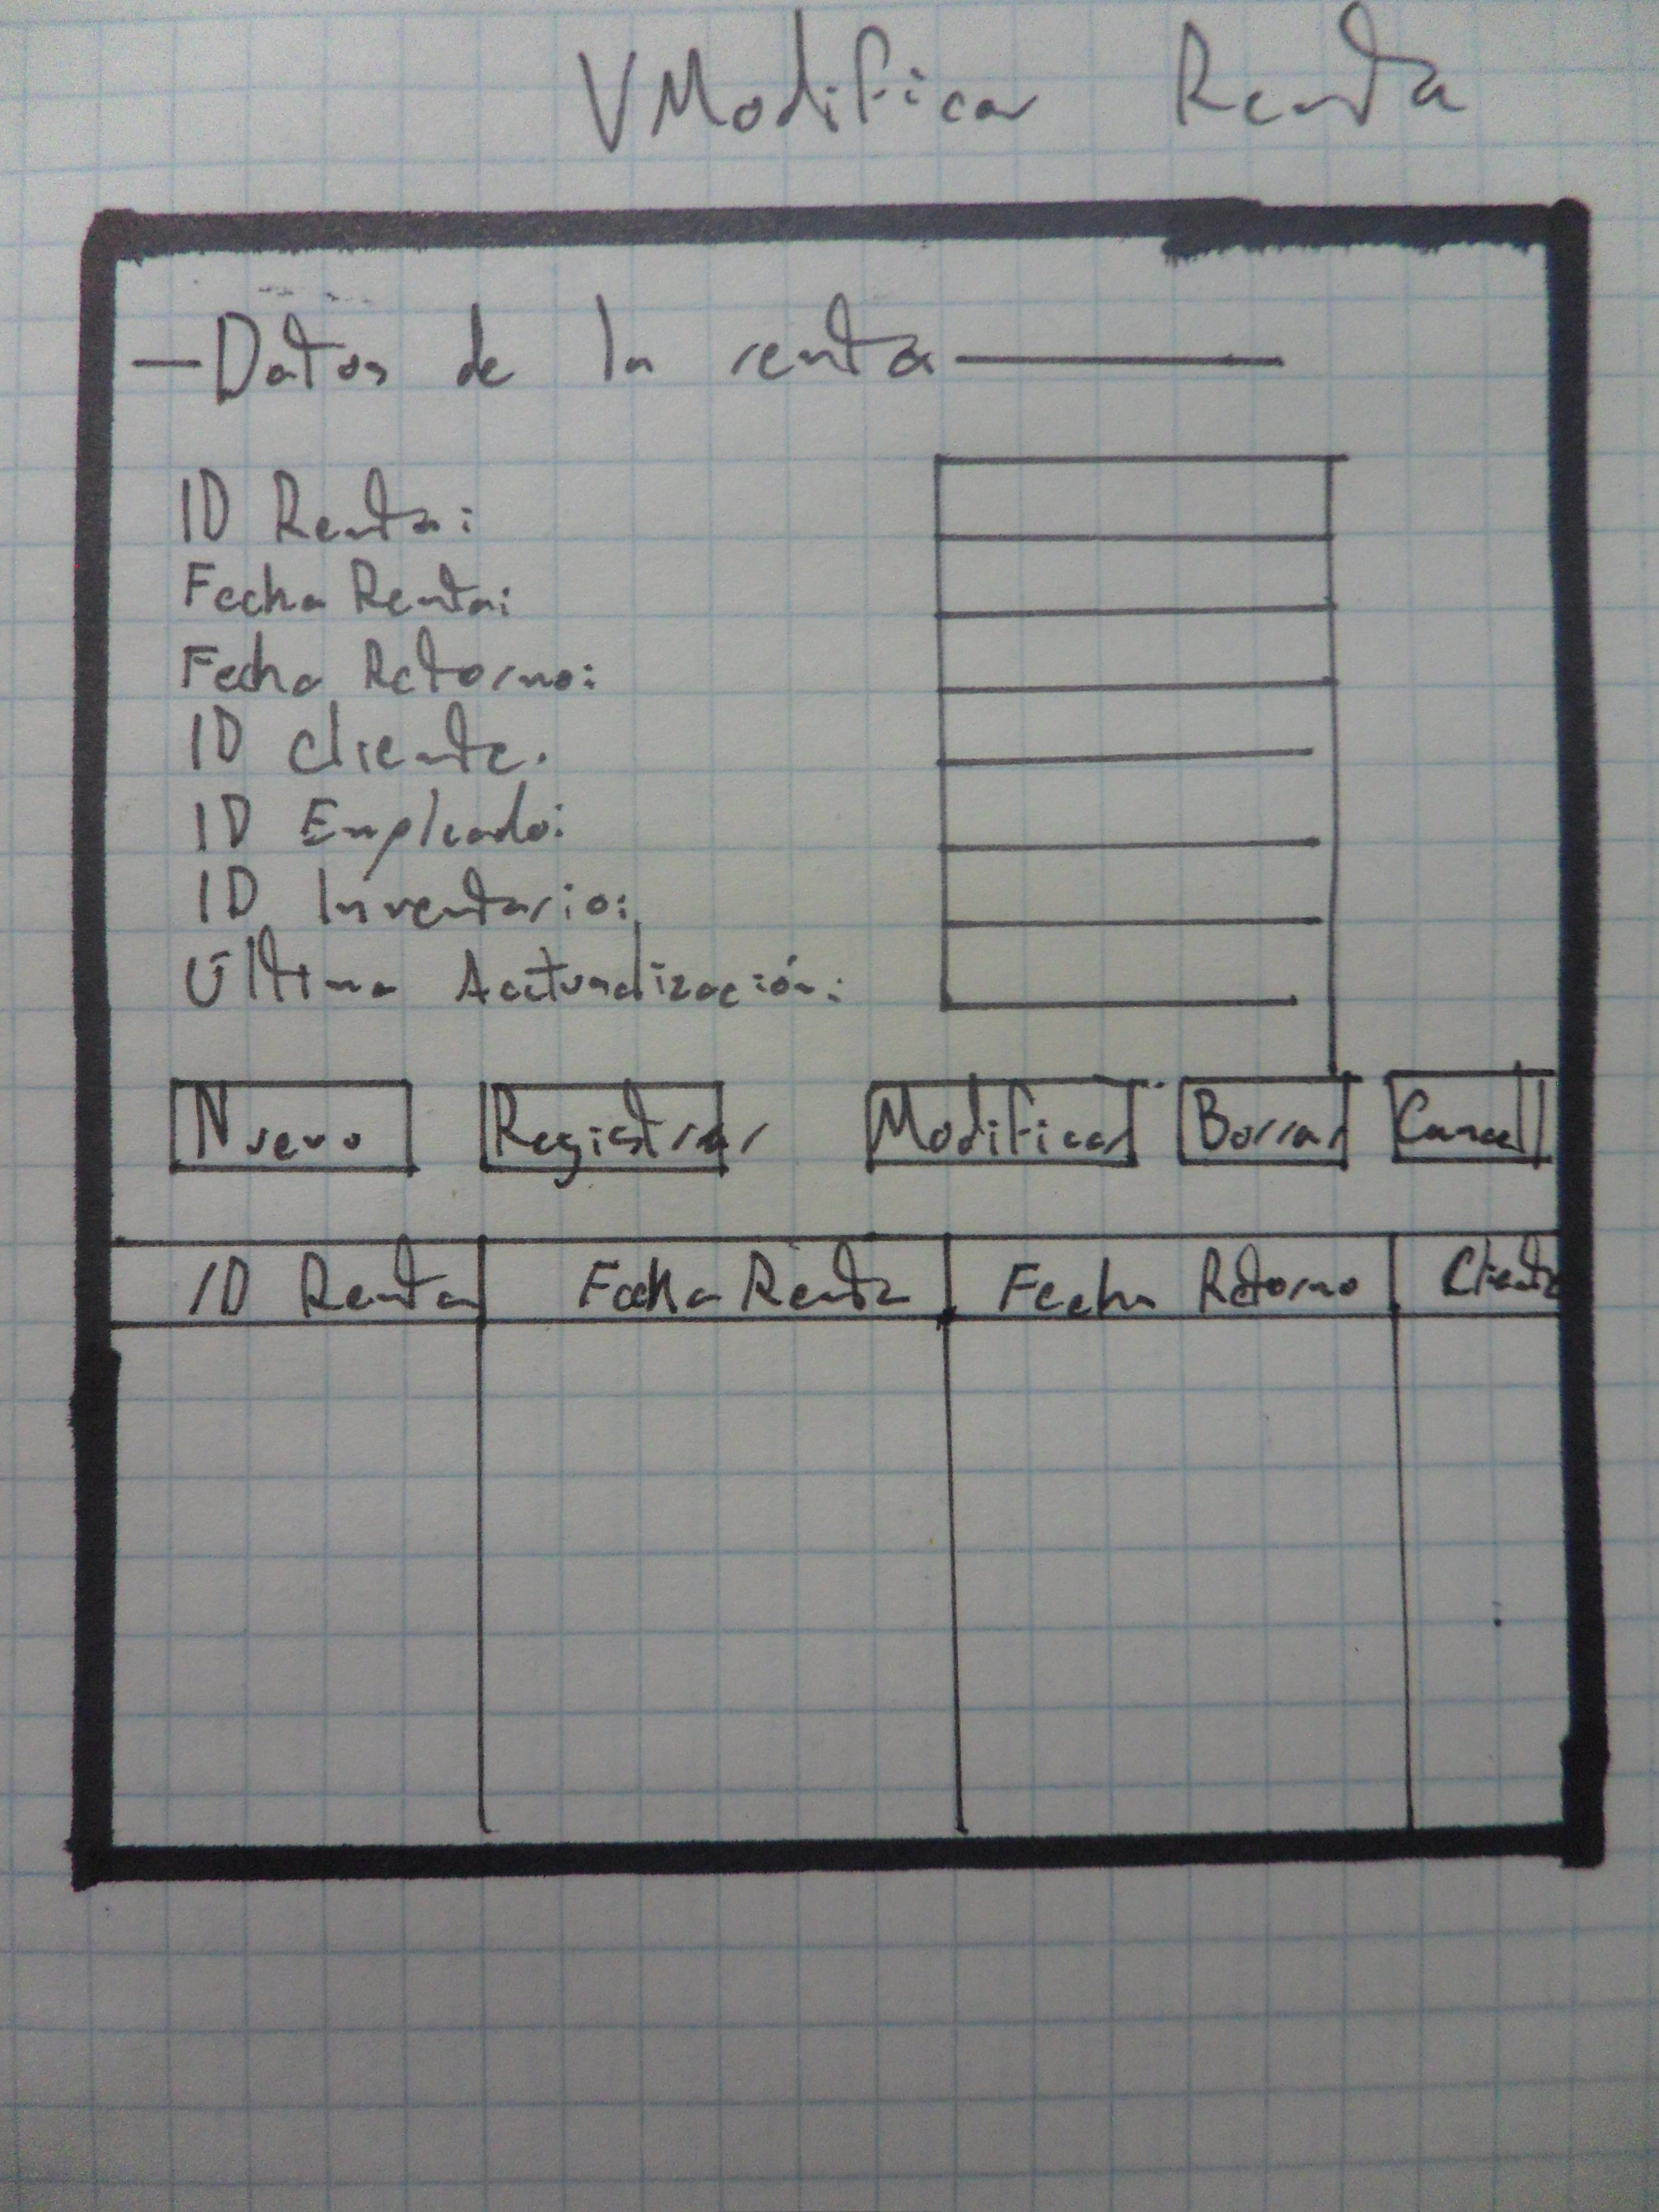 VModificar Renta
Datos de la renta
ID Renta:
Fecha Renta:
Fecha Retorno:
ID cliente.
ID Empleado:
ID Inventario:
Ultima Actualización:
Nuevo Registrar Modificar Borrar Cancel
ID Renta Fecha Renta Fecha Retorno Cliente